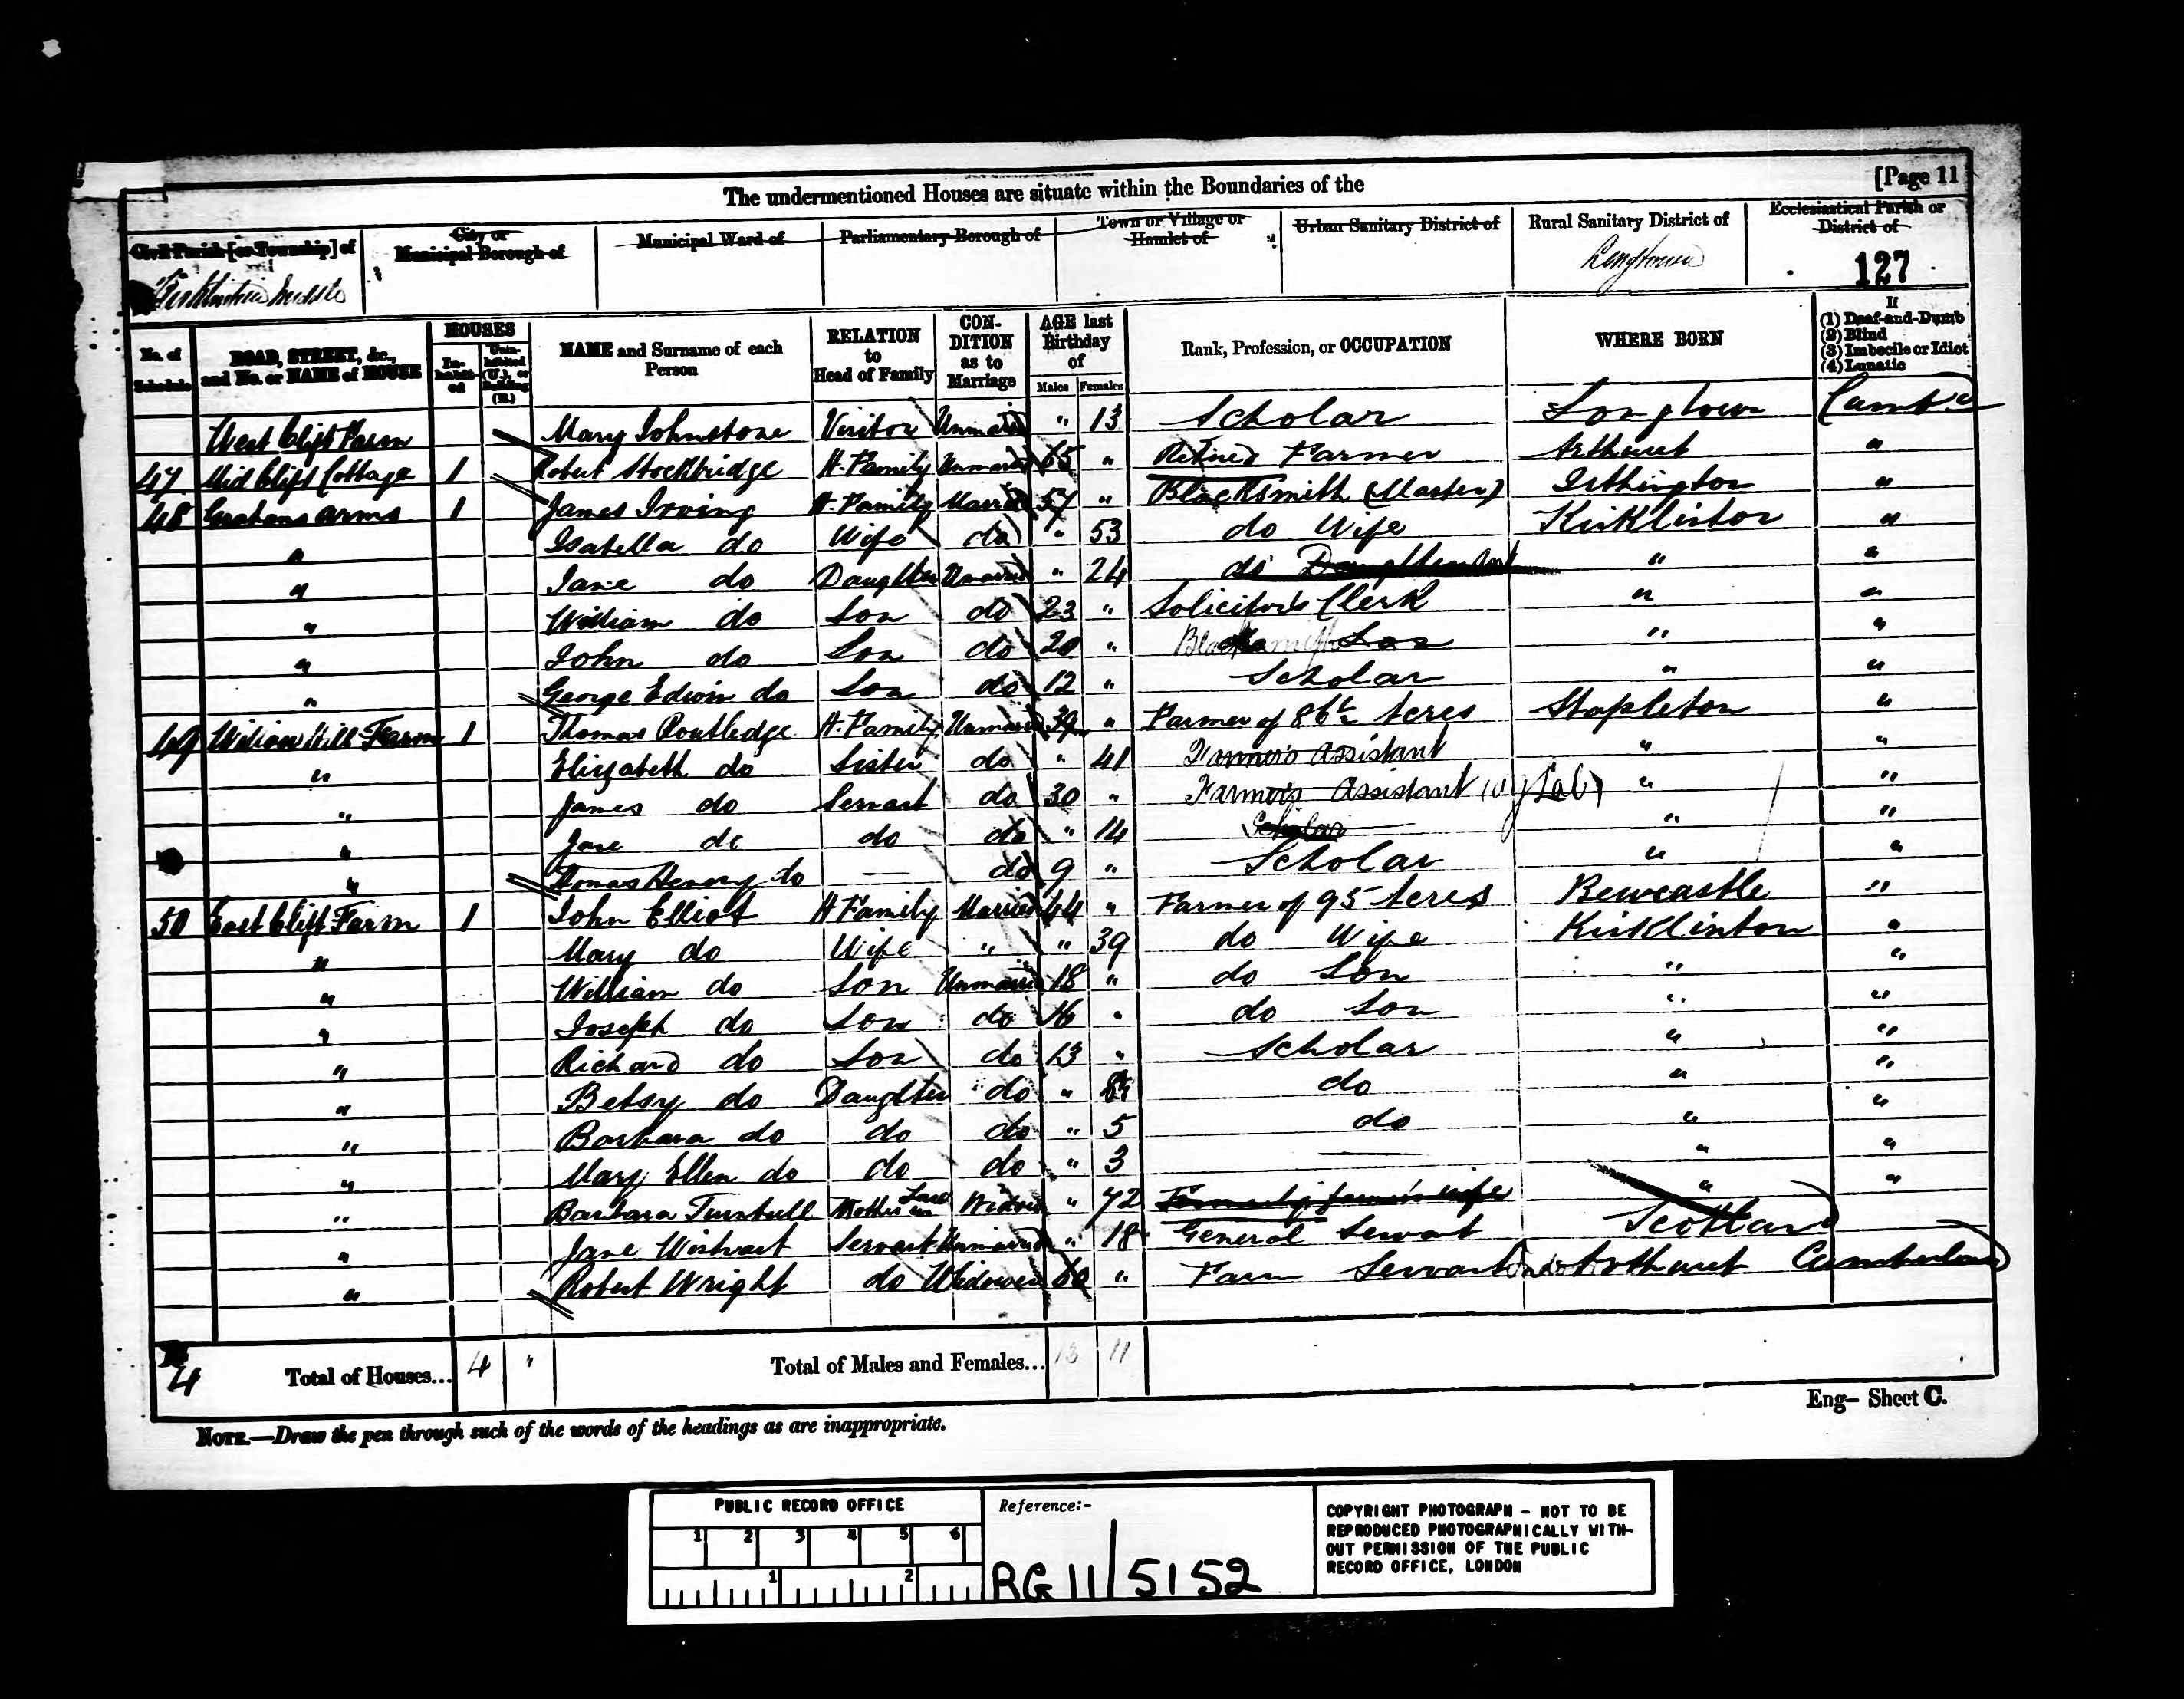 [Page 11
The undermentioned Houses are situate within the Boundaries of the
Civil Parish [or Township] of
City or Municipal Borough of
Municipal Ward of
Parliamentary Borough of
Town or Village or Hamlet of
Urban Sanitary District of
Rural Sanitary District of
Ecclesiastical Parish or District of
Longtown
127
No. of Schedule
ROAD, STREET, &c., and No. or NAME of HOUSE
HOUSES
In-habit-ed
Unin-habited (U.), or Building (B.)
NAME and Surname of each Person
RELATION to Head of Family
CON-DITION as to Marriage
AGE last Birthday of
Males Females
Rank, Profession, or OCCUPATION
WHERE BORN
If
(1) Deaf-and-Dumb
(2) Blind
(3) Imbecile or Idiot
(4) Lunatic
West Clift Farm Mary Johnstone Visitor Unmarried " 13 Scholar Longtown
47 Mid Clift Cottage 1 Robert Stockbridge H. Family Unmarried 65 " Retired Farmer Arthuret "
48 Grahams Arms 1 James Irving H. Family Married 57 " Blacksmith (Master) Irthington "
" Isabella do Wife do " 53 do Wife Kirklinton "
" Jane do Daughter Unmarried " 24 do " "
" William do Son do 23 " Solicitor's Clerk " "
" John do Son do 20 " Son " "
" George Edwin do Son do 12 " Scholar " "
49 Willow Hill Farm 1 Thomas Routledge H. Family Unmarried 39 " Farmer of 86 Acres Stapleton "
" Elizabeth do Sister do " 41 Farmer's Assistant " "
" James do Servant do 30 " Farmer's Assistant (Ag Lab) " "
" Jane do do do " 14 Scholar " "
" Thomas Henry do — do 9 " Scholar " "
50 East Clift Farm 1 John Elliot H Family Married 44 " Farmer of 95 Acres Bewcastle "
" Mary do Wife " " 39 do Wife Kirklinton "
" William do Son Unmarried 18 " do Son " "
" Joseph do Son do 16 " do Son " "
" Richard do Son do 13 " Scholar " "
" Betsy do Daughter do " do " "
" Barbara do do do " 5 do " "
" Mary Ellen do do do " 3 — " "
" Barbara Turnbull Mother in Law Widow " 72 Formerly farmer's wife " "
" Jane Servant Unmarried " 18 General Servant Scotland
" Robert Wright do Widower 60 " Farm Servant Indoor Arthuret Cumberland
4 Total of Houses... 4 " Total of Males and Females... 13 11
Eng— Sheet C.
NOTE.—Draw the pen through such of the words of the headings as are inappropriate.
PUBLIC RECORD OFFICE
1 2 3 4 5 6
1 2
Reference:-
RG 11 / 5152
COPYRIGHT PHOTOGRAPH - NOT TO BE
REPRODUCED PHOTOGRAPHICALLY WITH-
OUT PERMISSION OF THE PUBLIC
RECORD OFFICE, LONDON